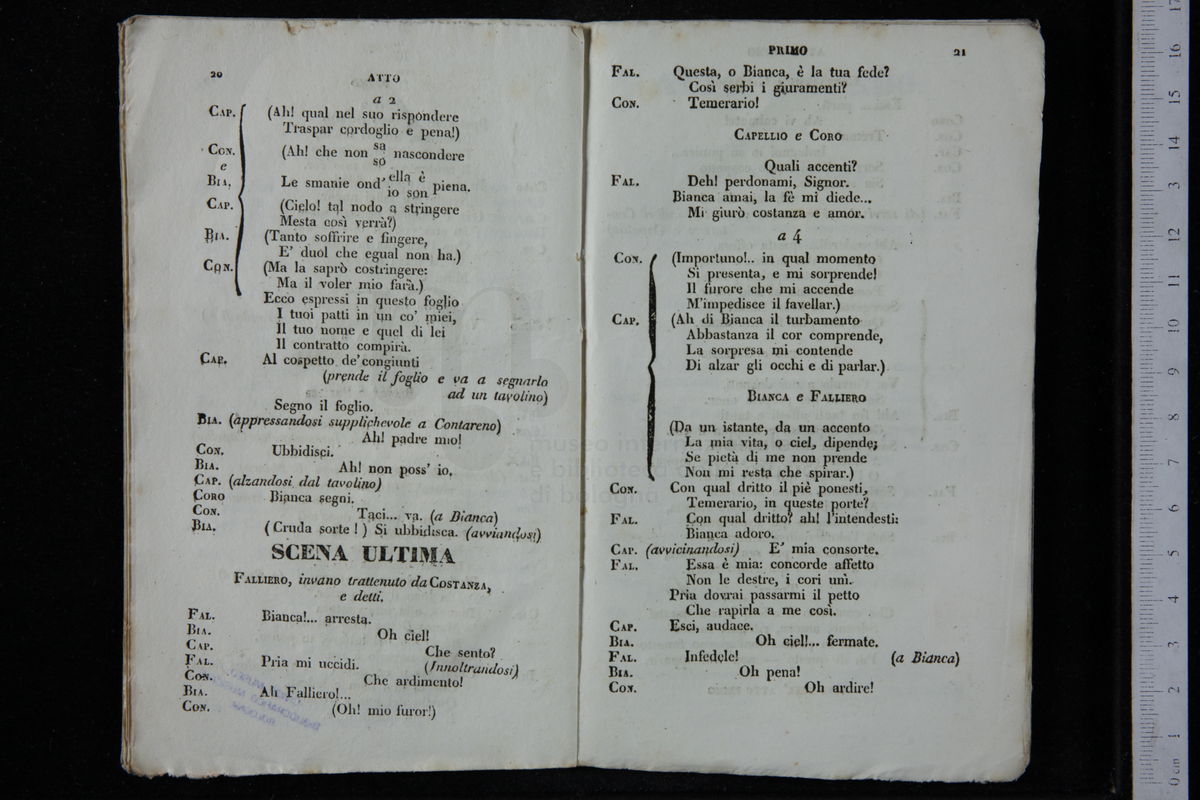 20
ATTO
a 2
CAP. (Ah! qual nel suo rispondere
Traspar cordoglio e pena!)
CON. (Ah! che non sa nascondere
so
e
BIA. Le smanie ond' ella è piena.
io son
CAP. (Cielo! tal nodo a stringere
Mesta così verrà?)
BIA. (Tanto soffrire e fingere,
E' duol che egual non ha.)
CON. (Ma la saprò costringere:
Ma il voler mio farà.)
Ecco espressi in questo foglio
I tuoi patti in un co' miei,
Il tuo nome e quel di lei
Il contratto compirà.
CAP. Al cospetto de' congiunti
(prende il foglio e va a segnarlo
ad un tavolino)
Segno il foglio.
BIA. (appressandosi supplichevole a Contareno)
Ah! padre mio!
CON. Ubbidisci.
BIA. Ah! non poss' io.
CAP. (alzandosi dal tavolino)
CORO Bianca segni.
CON. Taci... va. (a Bianca)
BIA. (Cruda sorte!) Si ubbidisca. (avviandosi)
SCENA ULTIMA
FALLIERO, invano trattenuto da COSTANZA,
e detti.
FAL. Bianca!... arresta.
BIA. Oh ciel!
CAP. Che sento?
FAL. Pria mi uccidi. (Innoltrandosi)
CON. Che ardimento!
BIA. Ah Falliero!...
CON. (Oh! mio furor!)
PRIMO
21
FAL. Questa, o Bianca, è la tua fede?
Così serbi i giuramenti?
CON. Temerario!
CAPELLIO e CORO
Quali accenti?
FAL. Deh! perdonami, Signor.
Bianca amai, la fè mi diede...
Mi giurò costanza e amor.
a 4
CON. (Importuno!.. in qual momento
Si presenta, e mi sorprende!
Il furore che mi accende
M'impedisce il favellar.)
CAP. (Ah di Bianca il turbamento
Abbastanza il cor comprende,
La sorpresa mi contende
Di alzar gli occhi e di parlar.)
BIANCA e FALLIERO
(Da un istante, da un accento
La mia vita, o ciel, dipende;
Se pietà di me non prende
Non mi resta che spirar.)
CON. Con qual dritto il piè ponesti,
Temerario, in queste porte?
FAL. Con qual dritto? ah! l'intendesti:
Bianca adoro.
CAP. (avvicinandosi) E' mia consorte.
FAL. Essa è mia: concorde affetto
Non le destre, i cori unì.
Pria dovrai passarmi il petto
Che rapirla a me così.
CAP. Esci, audace.
BIA. Oh ciel!... fermate.
FAL. Infedele! (a Bianca)
BIA. Oh pena!
CON. Oh ardire!